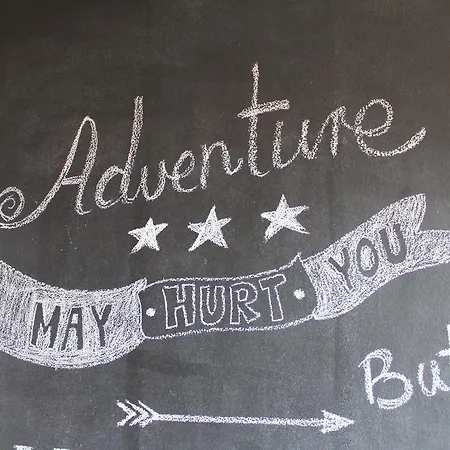 Adventure
MAY HURT YOU
But